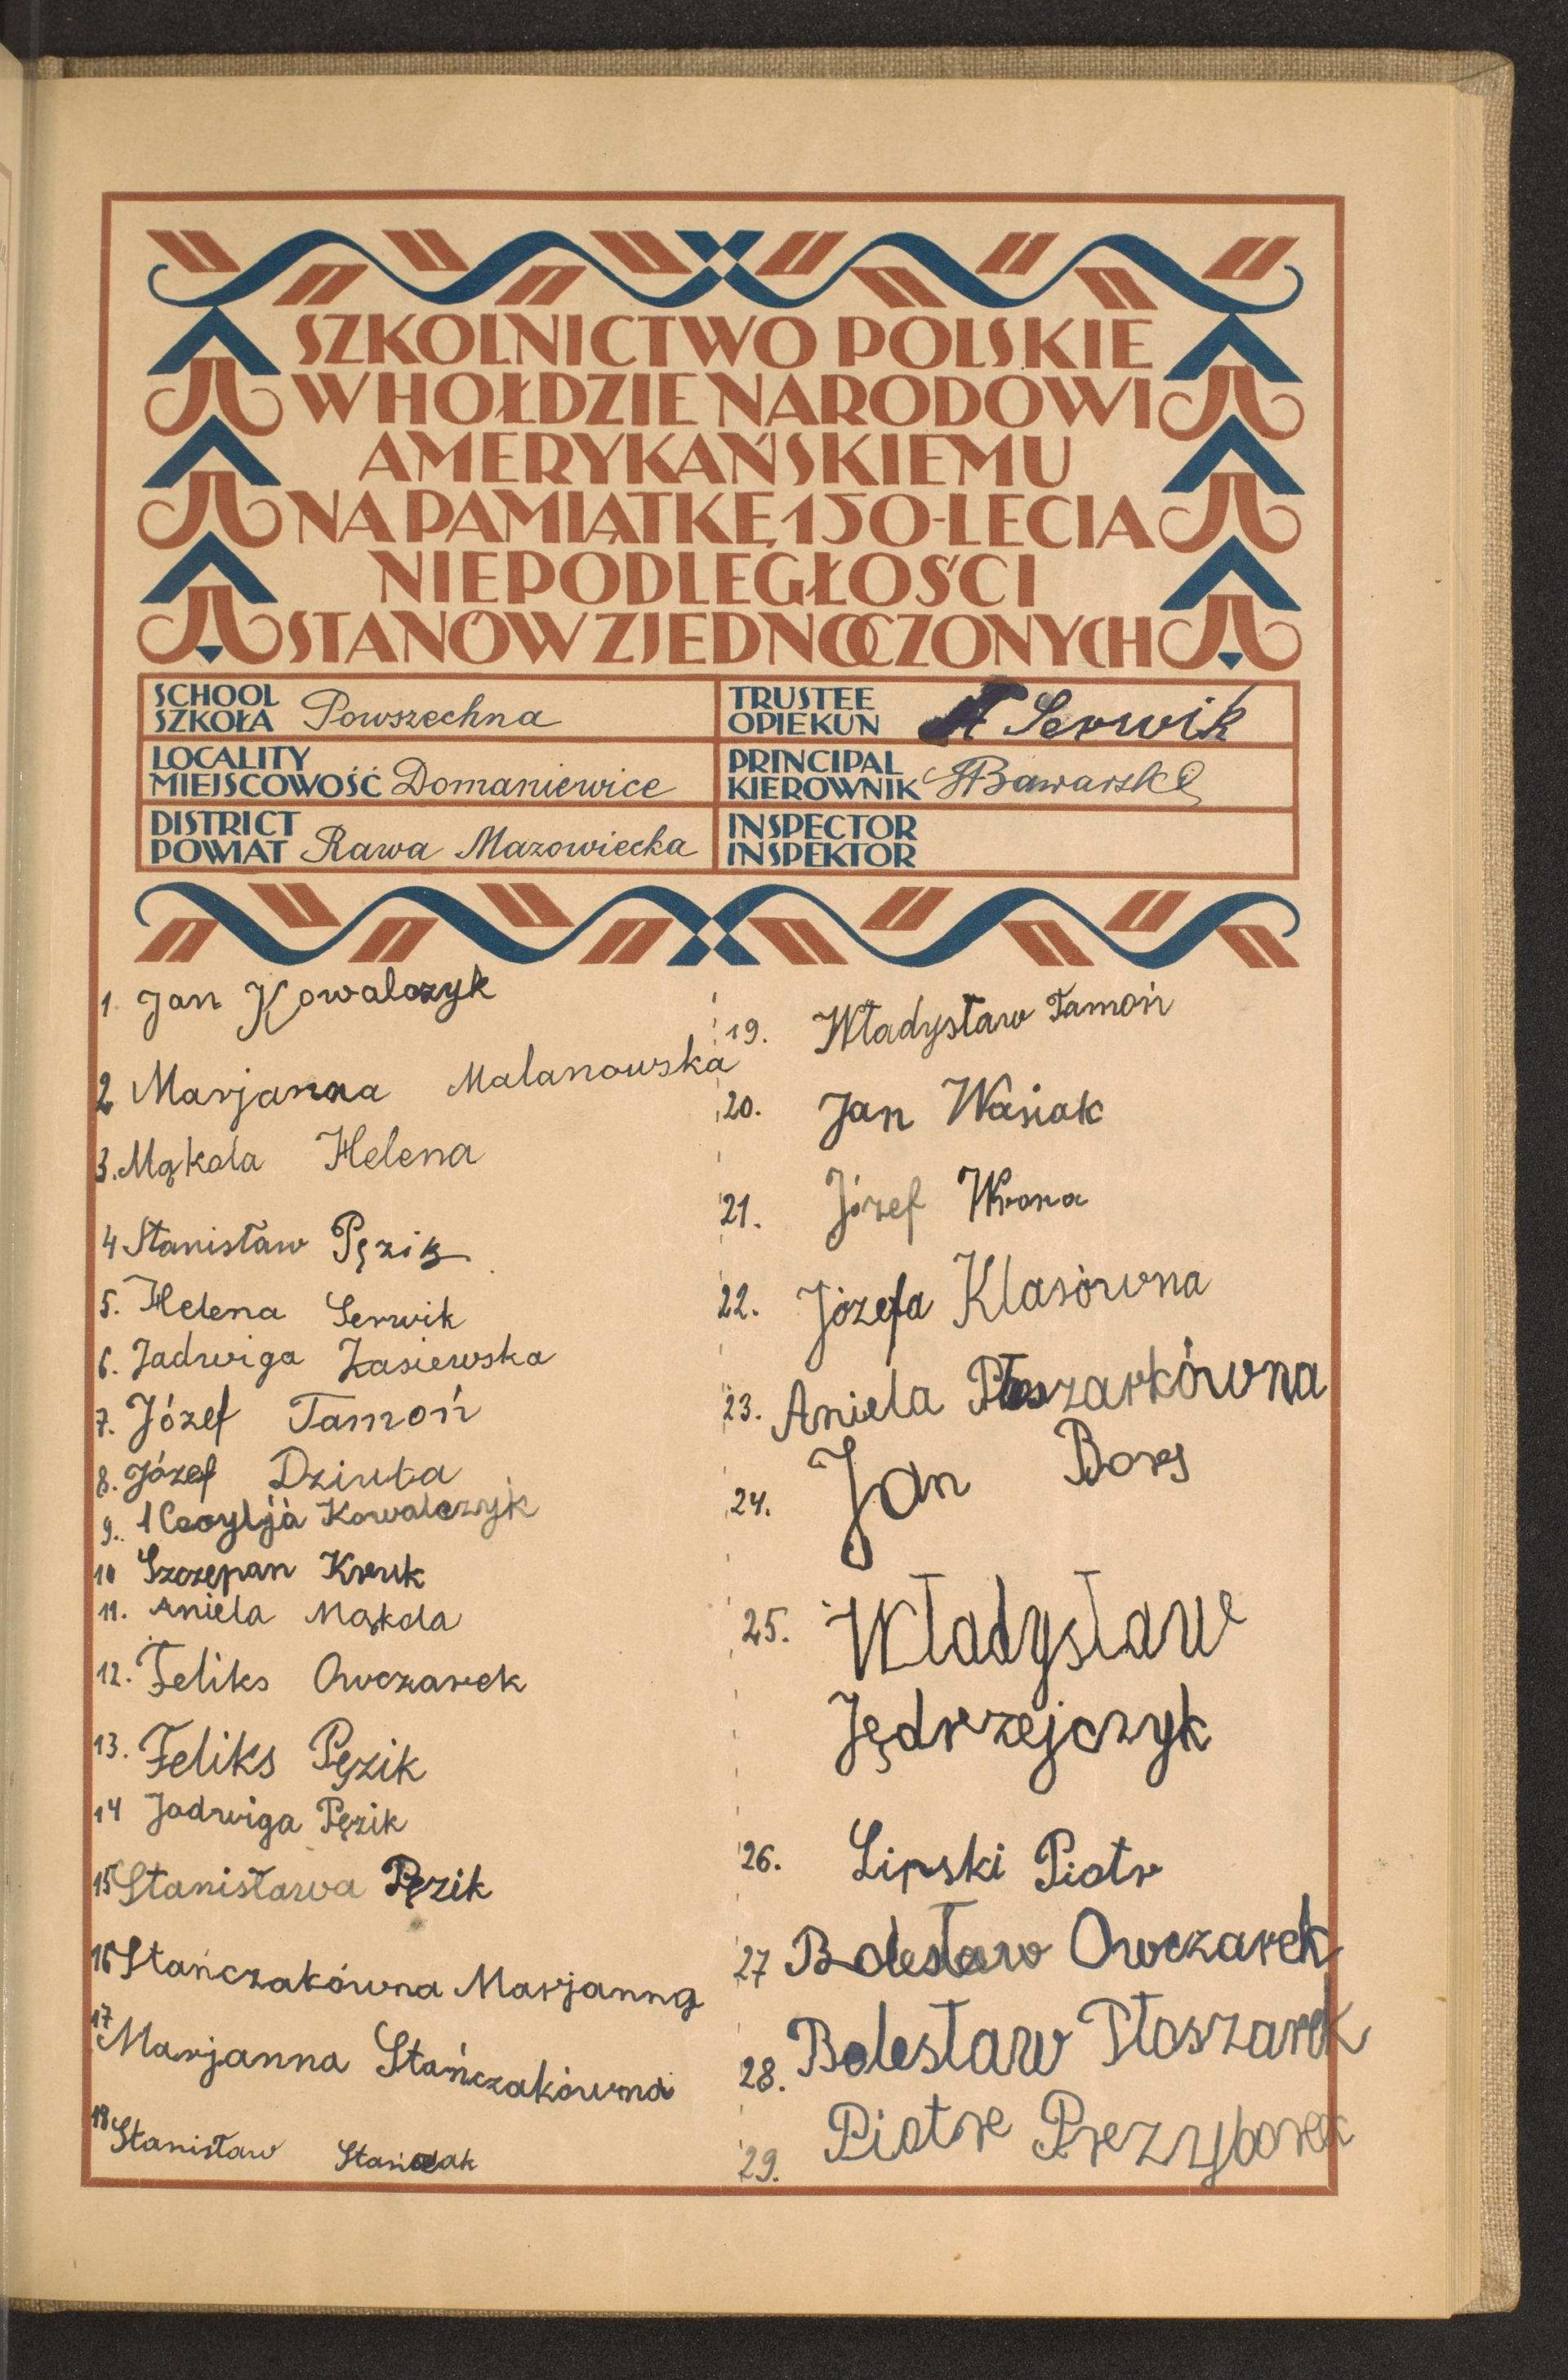 SZKOLNICTWO POLSKIE
W HOŁDZIE NARODOWI
AMERYKAŃSKIEMU
NA PAMIĄTKĘ 150-LECIA
NIEPODLEGŁOŚCI
STANÓW ZJEDNOCZONYCH
SCHOOL
SZKOŁA Powszechna
TRUSTEE
OPIEKUN Serwik
LOCALITY
MIEJSCOWOŚĆ Domaniewice
PRINCIPAL
KIEROWNIK Bawarski
DISTRICT
POWIAT Rawa Mazowiecka
INSPECTOR
INSPEKTOR
1. Jan Kowalczyk
2 Marjanna Malanowska
3. Mąkola Helena
4 Stanisław Pęzik
5. Helena Serwik
6. Jadwiga Zasiewska
7. Józef Tamoń
8. Józef Dziuba
9. Cecylja Kowalczyk
10 Szczepan Kruk
11. Aniela Mąkola
12. Feliks Owczarek
13. Feliks Pęzik
14 Jadwiga Pęzik
15 Stanisława Pęzik
16 Stańczakówna Marjanna
17 Marjanna Stańczakówna
18 Stanisław
19. Władysław Tamoń
20. Jan Wasiak
21. Józef Wrona
22. Józefa Klasówna
23. Aniela Płoszarkówna
24. Jan Bors
25. Władysław
Jędrzejczyk
26. Lipski Piotr
27 Bolesław Owczarek
28. Bolesław Płoszarek
29. Piotr Przyborek